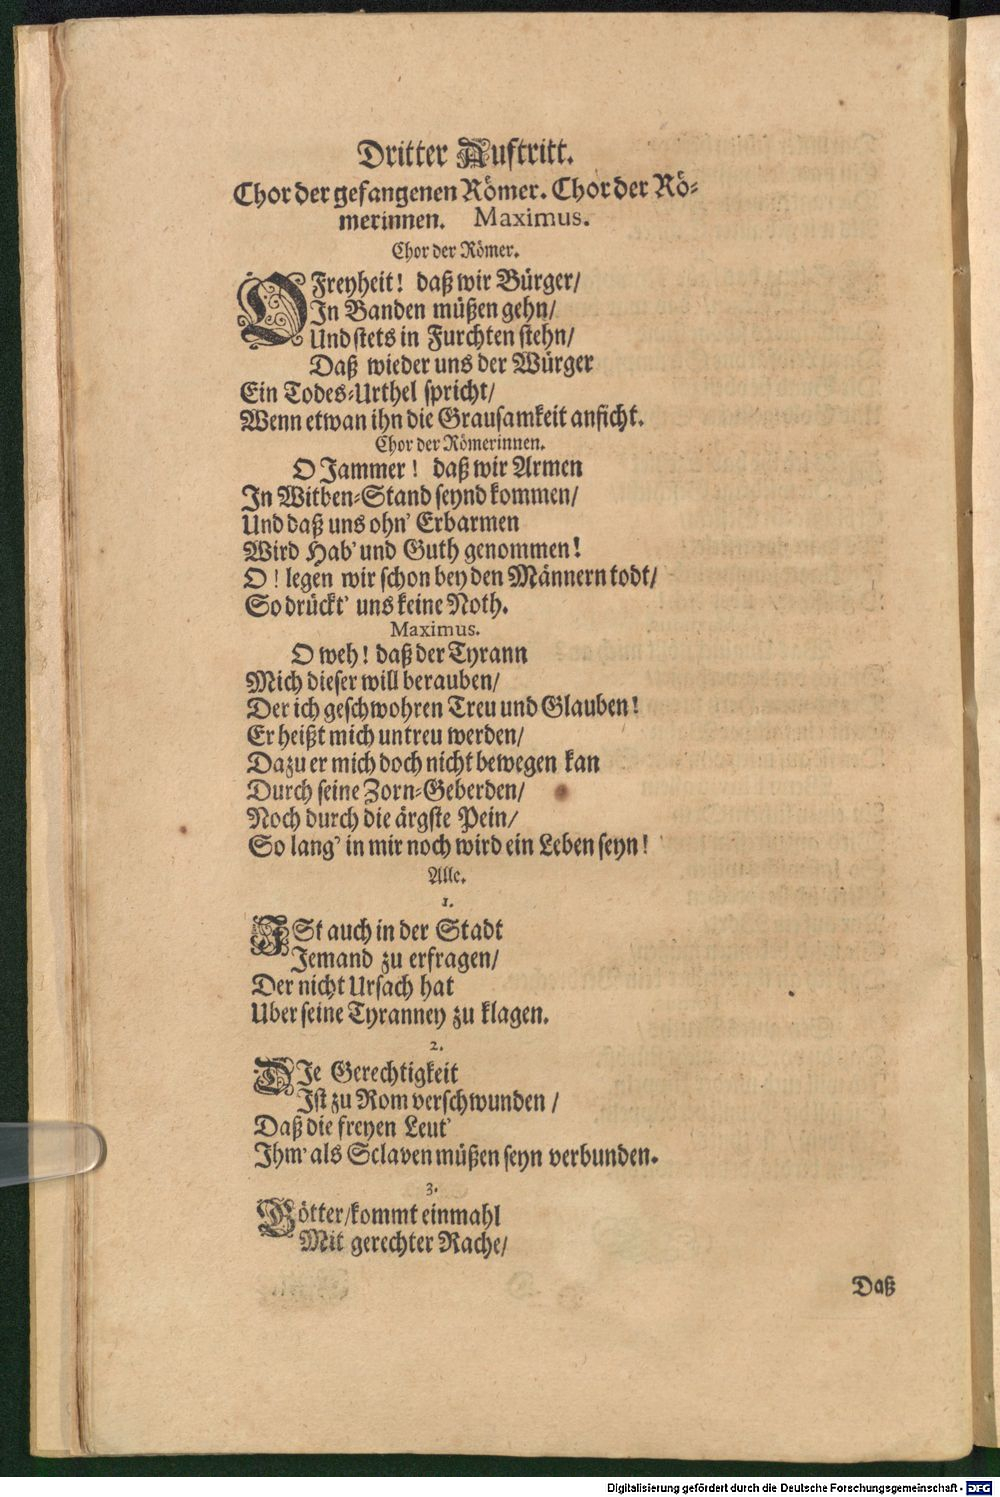 Dritter Auftritt.
Chor der gefangenen Römer. Chor der Rö-
merinnen. Maximus.
Chor der Römer.
O Freyheit! daß wir Bürger/
In Banden müßen gehn/
Und stets in Furchten stehn/
Daß wieder uns der Würger
Ein Todes-Urthel spricht/
Wenn etwan ihn die Grausamkeit anficht.
Chor der Römerinnen.
O Jammer! daß wir Armen
In Witben-Stand seynd kommen/
Und daß uns ohn' Erbarmen
Wird Hab' und Guth genommen!
O! legen wir schon bey den Männern todt/
So drückt' uns keine Noth.
Maximus.
O weh! daß der Tyrann
Mich dieser will berauben/
Der ich geschwohren Treu und Glauben!
Er heißt mich untreu werden/
Dazu er mich doch nicht bewegen kan
Durch seine Zorn-Geberden/
Noch durch die ärgste Pein/
So lang' in mir noch wird ein Leben seyn!
Alle.
1.
ISt auch in der Stadt
Jemand zu erfragen/
Der nicht Ursach hat
Uber seine Tyranney zu klagen.
2.
DIe Gerechtigkeit
Ist zu Rom verschwunden/
Daß die freyen Leut'
Ihm' als Sclaven müßen seyn verbunden.
3.
Götter/kommt einmahl
Mit gerechter Rache/
Daß
Digitalisierung gefördert durch die Deutsche Forschungsgemeinschaft - DFG